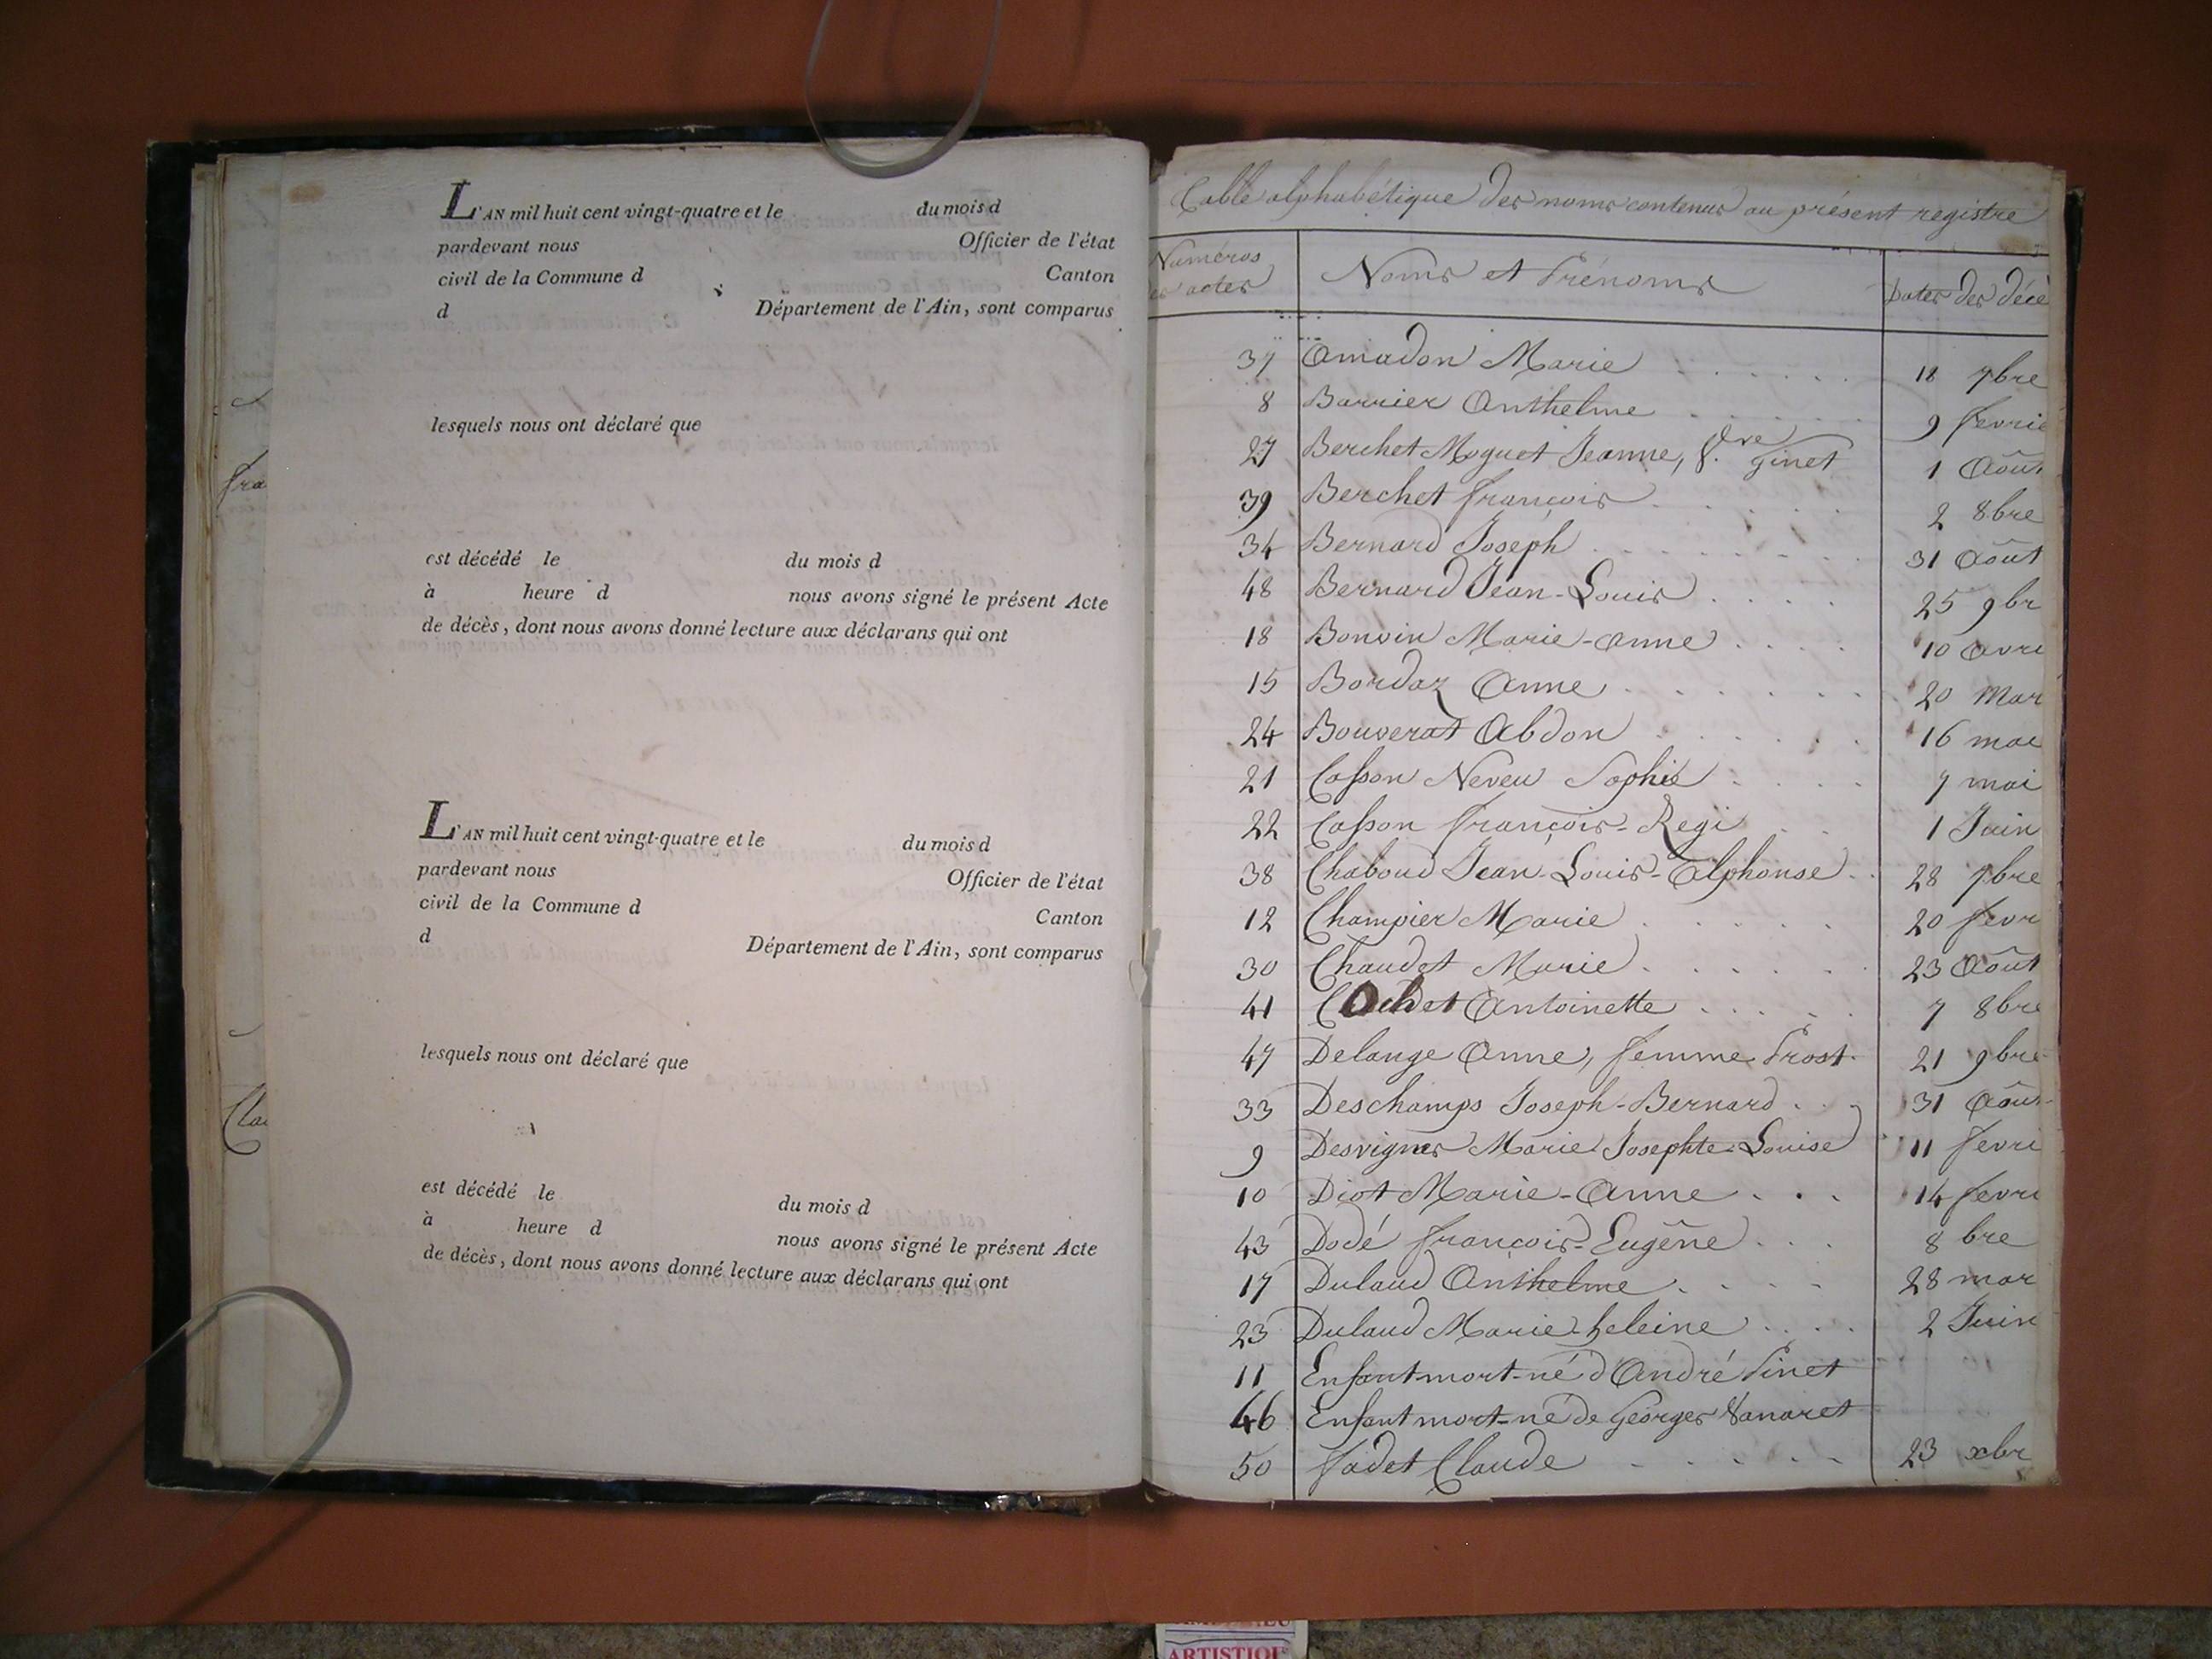 L'AN mil huit cent vingt-quatre et le du mois d
pardevant nous Officier de l'état
civil de la Commune d Canton
d Département de l'Ain, sont comparus
lesquels nous ont déclaré que
est décédé le du mois d
à heure d nous avons signé le présent Acte
de décès, dont nous avons donné lecture aux déclarans qui ont
L'AN mil huit cent vingt-quatre et le du mois d
pardevant nous Officier de l'état
civil de la Commune d Canton
d Département de l'Ain, sont comparus
lesquels nous ont déclaré que
est décédé le du mois d
à heure d nous avons signé le présent Acte
de décès, dont nous avons donné lecture aux déclarans qui ont
fra
Cla
Table alphabétique des noms contenus au présent registre
Numéros
des actes
Noms et Prénoms
Dates des décè
37 Amadon Marie 18 7bre
8 Barrier Anthelme 9 fevrie
27 Berchet Moguet Jeanne, Vve Ginet 1 Aôut
39 Berchet françois 2 8bre
34 Bernard Joseph 31 Aôut
48 Bernard Jean-Louis 25 9br
18 Bonvin Marie-Anne 10 Avri
15 Bordaz Anne 20 Mar
24 Bouverat Abdon 16 mai
21 Casson Neveu Sophie 7 mai
22 Casson françois-Regi 1 Juin
38 Chaboud Jean-Louis-Alphonse 28 7bre
12 Champier Marie 20 fevr
30 Chaudet Marie 23 Aôut
41 Cochet Antoinette 7 8bre
47 Delange Anne, femme Prost 21 9bre
33 Deschamps Joseph-Bernard 31 Aôut
9 Desvignes Marie-Josephte-Louise 11 fevri
10 Diot Marie-Anne 14 fevri
43 Dodé françois-Eugêne 8 bre
17 Dulaud Anthelme 28 mar
23 Dulaud Marie-heleine 2 Juin
11 Enfant-mort-né d'André Pinet
46 Enfant mort-né de Georges Vanaret
50 fadet Claude 23 xbr
ARTISTIQUE